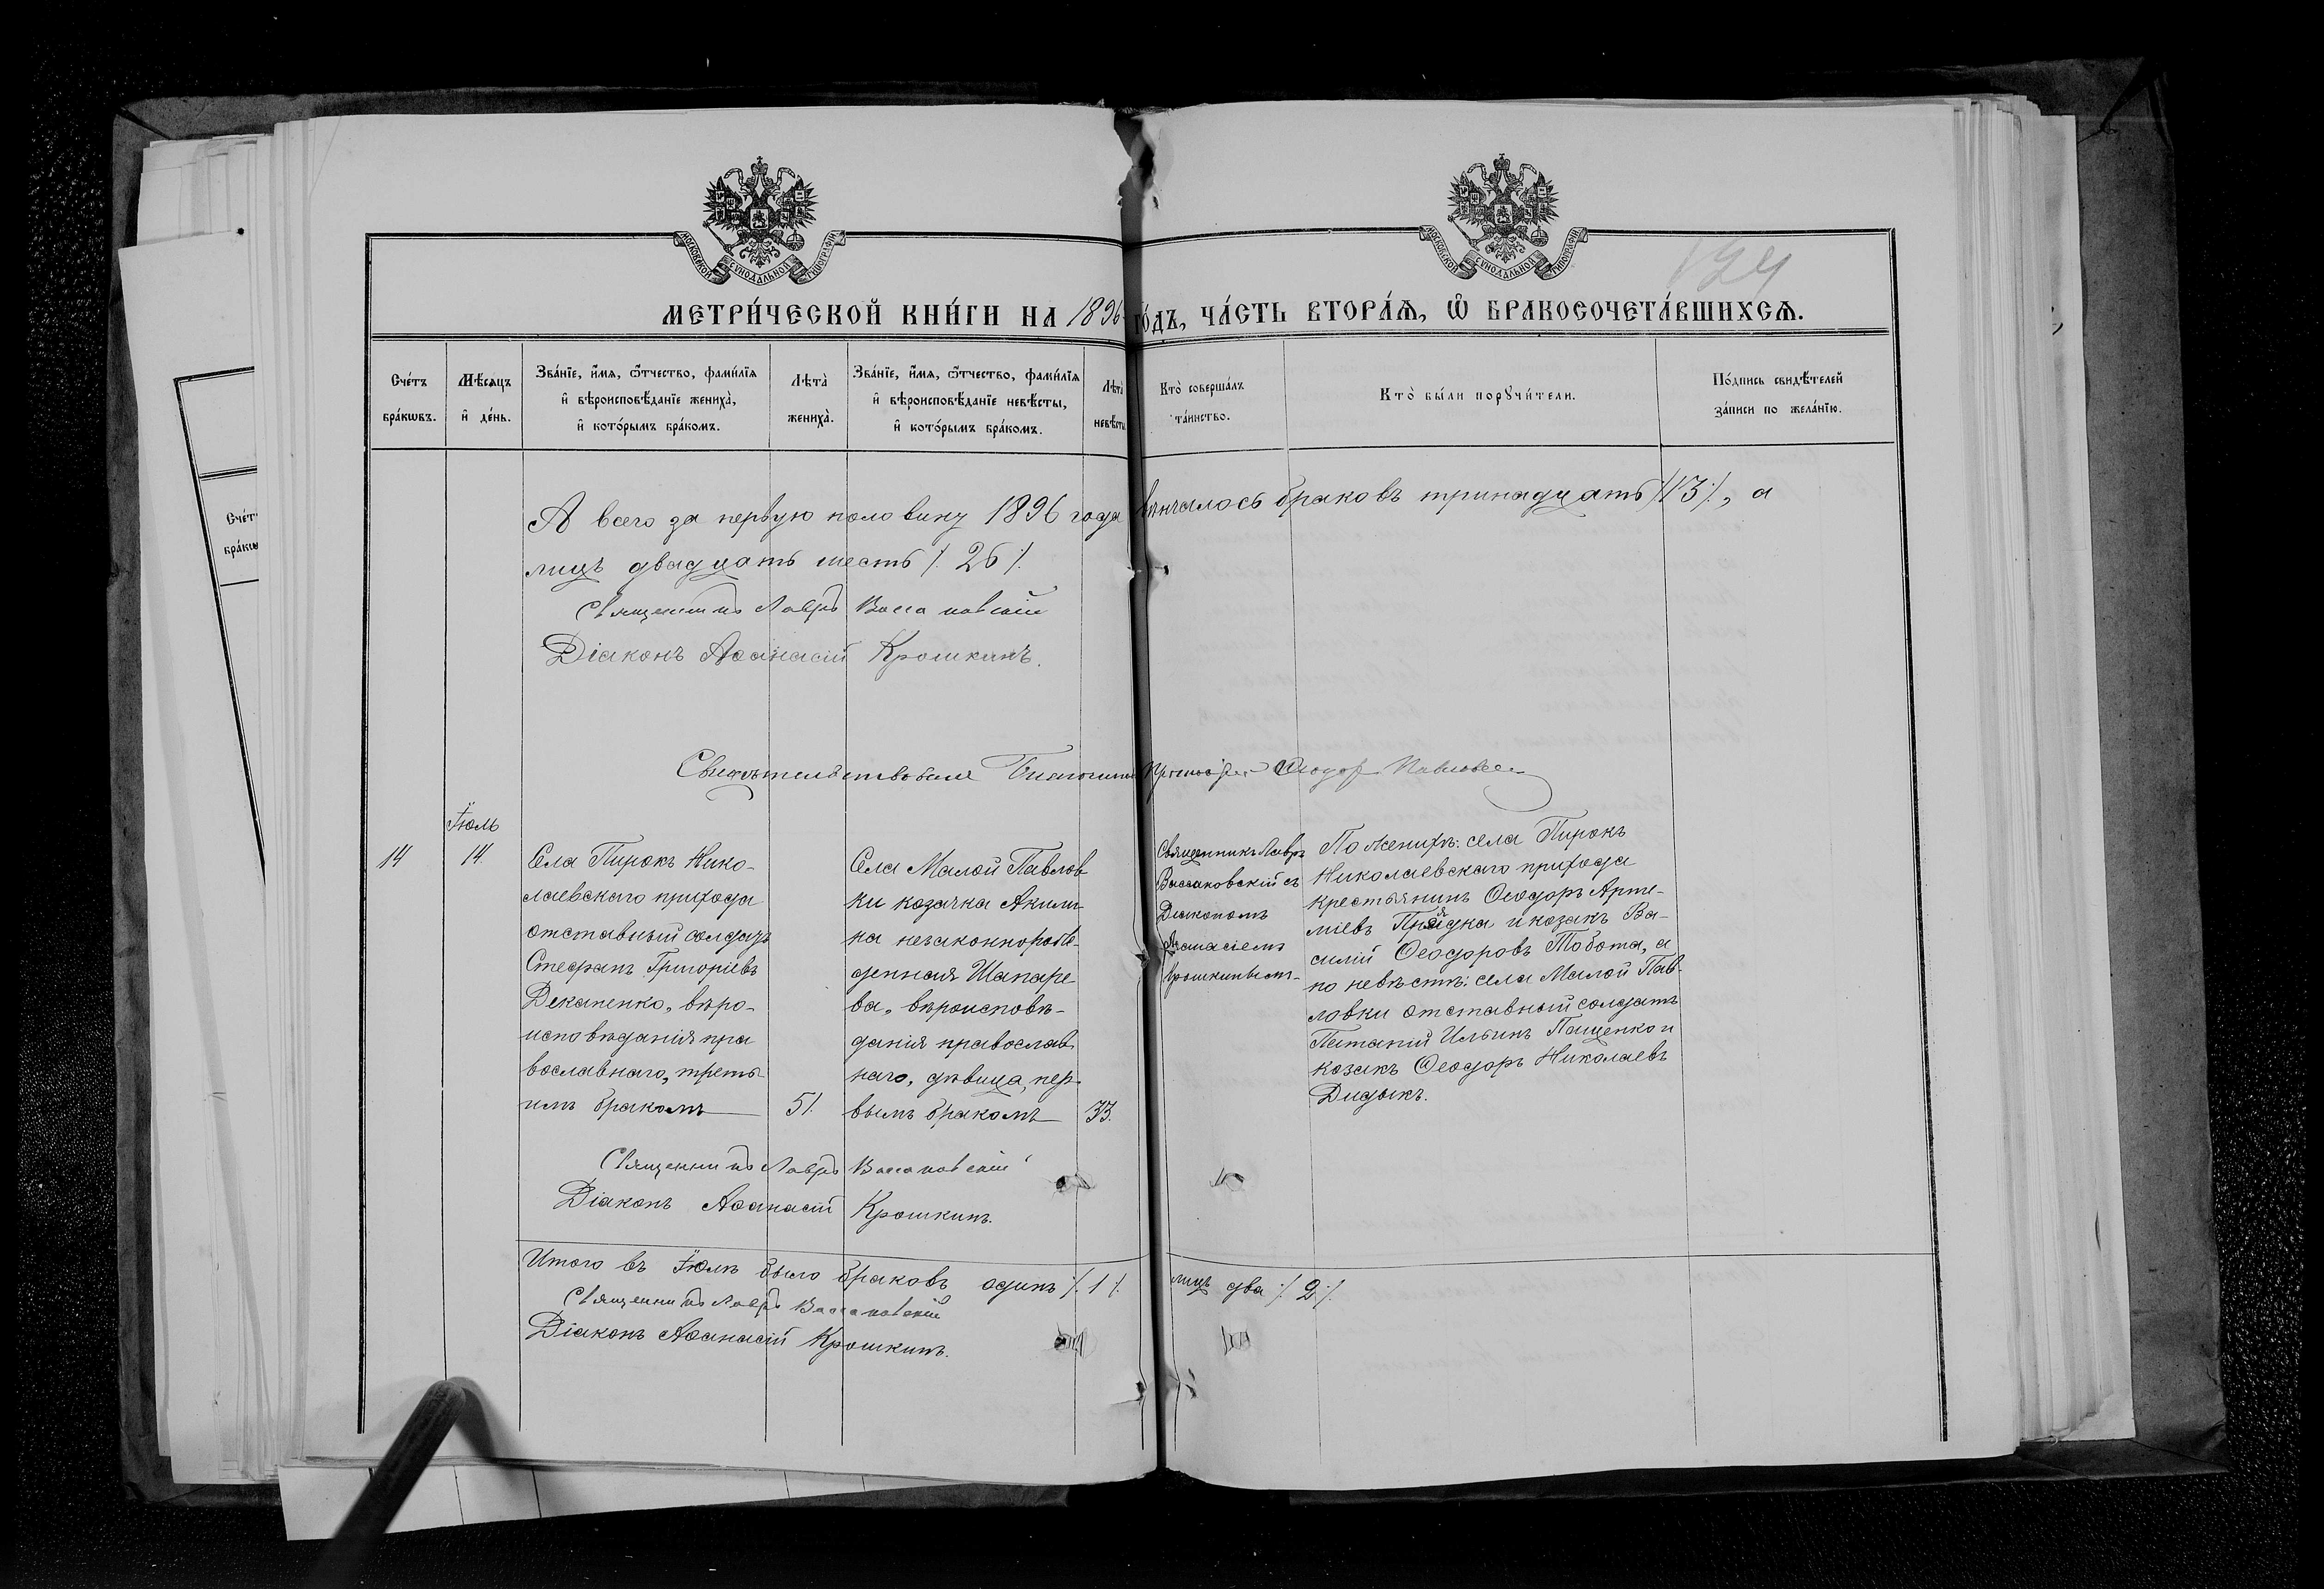 МОСКОВСКОЙ СѴНОДАЛЬНОЙ ТИПОГРАФІИ
МОСКОВСКОЙ СѴНОДАЛЬНОЙ ТИПОГРАФІИ
124
МЕТРИ́ЧЕСКОЙ КНИ́ГИ НА 1896 ГО́ДЪ, ЧА́СТЬ ВТОРА́Ѧ, Ѽ БРАКОСОЧЕТА́ВШИХСѦ.
Сче́тъ
бра́кѡвъ.
Мѣ́сяцъ
и҆ де́нь.
Зва́нїе, и҆́мя, ѻ҆́тчество, фами́лїя
и҆ вѣроисповѣ́данїе жениха̀,
и҆ кото́рымъ бра́комъ.
Лѣта̀
жениха̀.
Зва́нїе, и҆́мя, ѻ҆́тчество, фами́лїя
и҆ вѣроисповѣ́данїе невѣ́сты,
и҆ кото́рымъ бра́комъ.
Лѣта̀
невѣ́сты
Кто̀ соверша́лъ
та́инство.
Кто̀ бы́ли порꙋчи́тели.
По́дпись свидѣ́телей
за́писи по жела́нїю.
Сче́т
бра́кѡ
А всего за первую половину 1896 года вѣнчалось браковъ тринадцать /:13:/, а
лицъ двадцать шесть /:26:/.
Священникъ Лавръ Вассаковскій
Діаконъ Аѳанасій Крошкинъ.
Ѳеодоръ
Іюль
14
14
Села Пирокъ Нико-
лаевскаго прихода
отставный солдатъ
Стефанъ Григоріевъ
Деканенко, вѣро-
исповѣданія пра
вославнаго, треть
имъ бракомъ
51.
Села Малой Павлов
ки козачка Акили-
на незаконнорож-
денная Шапаре
ва, вѣроисповѣ-
данія православ
наго, дѣвица, пер
вымъ бракомъ
33.
Священникъ Лавръ
Вассаковскій съ
Діакономъ
Аѳанасіемъ
Крошкинымъ
По женихѣ: села Пирокъ
Николаевскаго прихода
крестьянинъ Ѳеодоръ Арте-
міевъ Прядка и козакъ Ва-
силій Ѳеодоровъ Тобота, а
по невѣстѣ: села Малой Пав-
ловки отставный солдатъ
Ильинъ Пащенко и
козакъ Ѳеодоръ Николаевъ
Дидыкъ.
Священникъ Лавръ Вассаковскій
Діаконъ Аѳанасій Крошкинъ.
Итого въ Іюлѣ было браковъ одинъ /:1:/ лицъ два /:2:/.
Священникъ Лавръ Вассаковскій
Діаконъ Аѳанасій Крошкинъ.